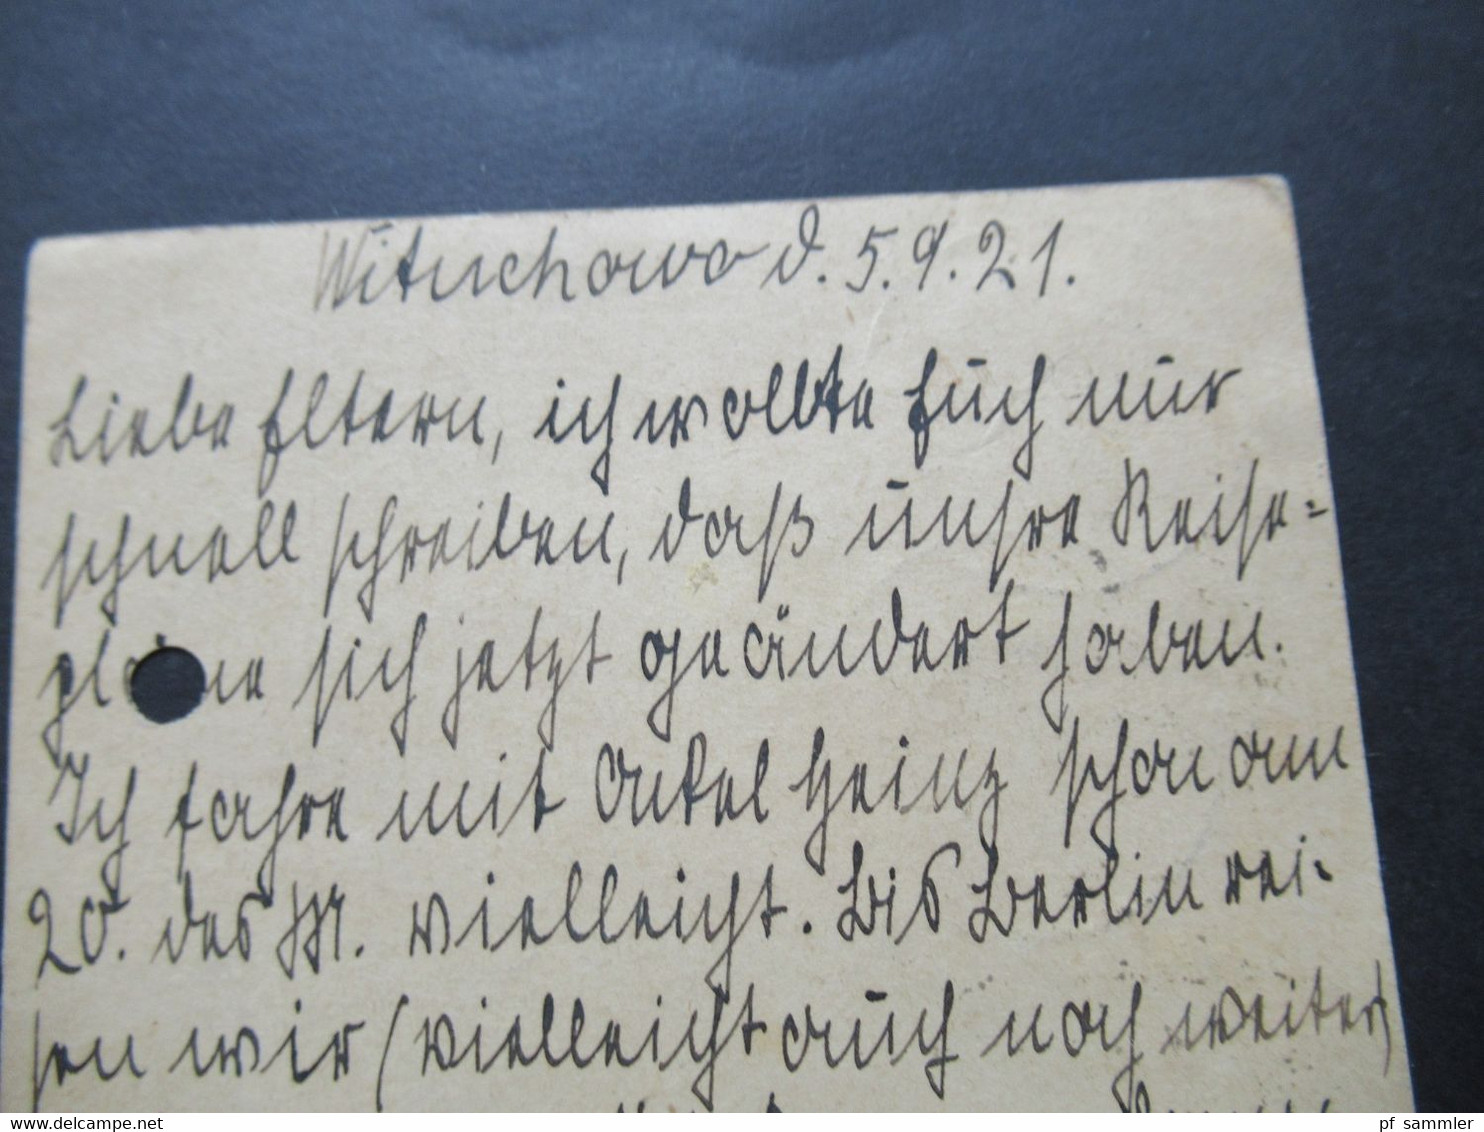 Wituchowo d. 5.9.21.
Liebe Eltern, ich wollte Euch nur
schnell schreiben, daß unsre Reise=
pläne sich jetzt geändert haben.
Ich fahre mit Onkel Heinz schon am
20. des M. vielleicht. Bis Berlin rei-
sen wir (vielleicht auch noch weiter)
delcampe.net
pf_sammler